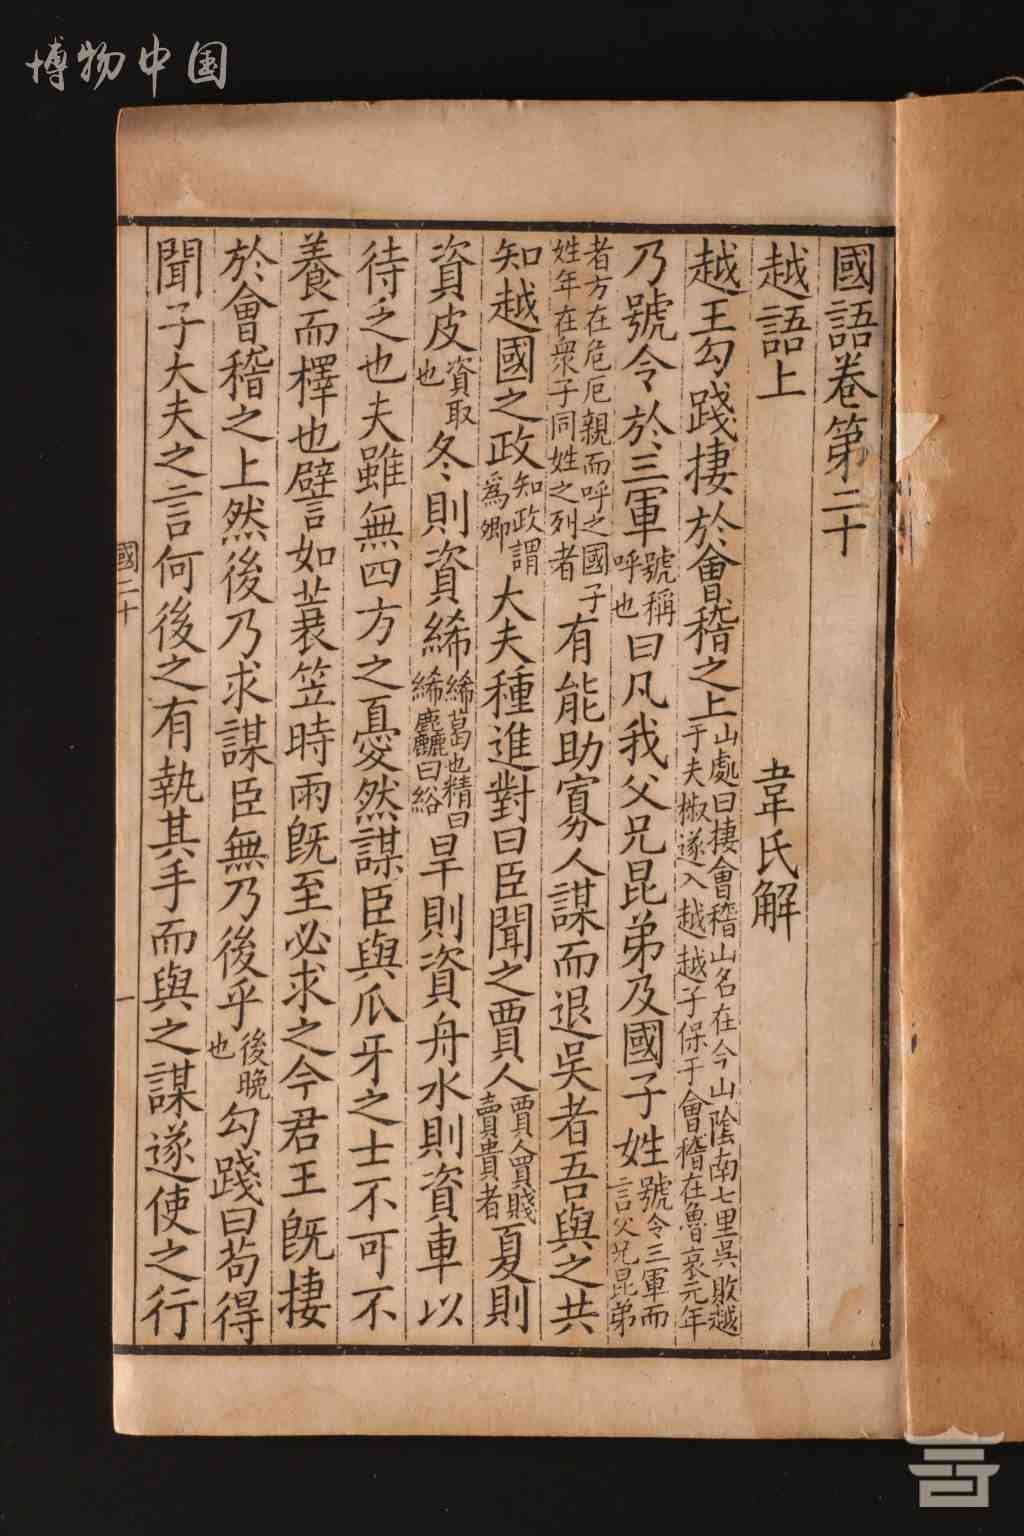 博物中国
國語卷第二十
越語上 韋氏解
越王勾踐棲於會稽之上山處曰棲會稽山名在今山陰南七里吳敗越于夫椒遂入越越子保于會稽在魯哀元年
乃號令於三軍號稱呼也曰凡我父兄昆弟及國子姓號令三軍而言父兄昆弟
者方在危厄親而呼之國子姓年在衆子同姓之列者有能助寡人謀而退吳者吾與之共
知越國之政知政謂爲卿大夫種進對曰臣聞之賈人賈人買賤賣貴者夏則
資皮資取也冬則資絺絺葛也精曰絺麤曰綌旱則資舟水則資車以
待乏也夫雖無四方之憂然謀臣與爪牙之士不可不
養而擇也譬如蓑笠時雨既至必求之今君王既棲
於會稽之上然後乃求謀臣無乃後乎後晚也勾踐曰苟得
聞子大夫之言何後之有執其手而與之謀遂使之行
國二十
一